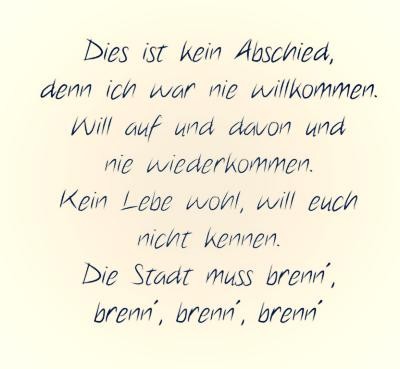 Dies ist kein Abschied,
denn ich war nie willkommen.
Will auf und davon und
nie wiederkommen.
Kein Lebe wohl, will euch
nicht kennen.
Die Stadt muss brenn',
brenn', brenn', brenn'